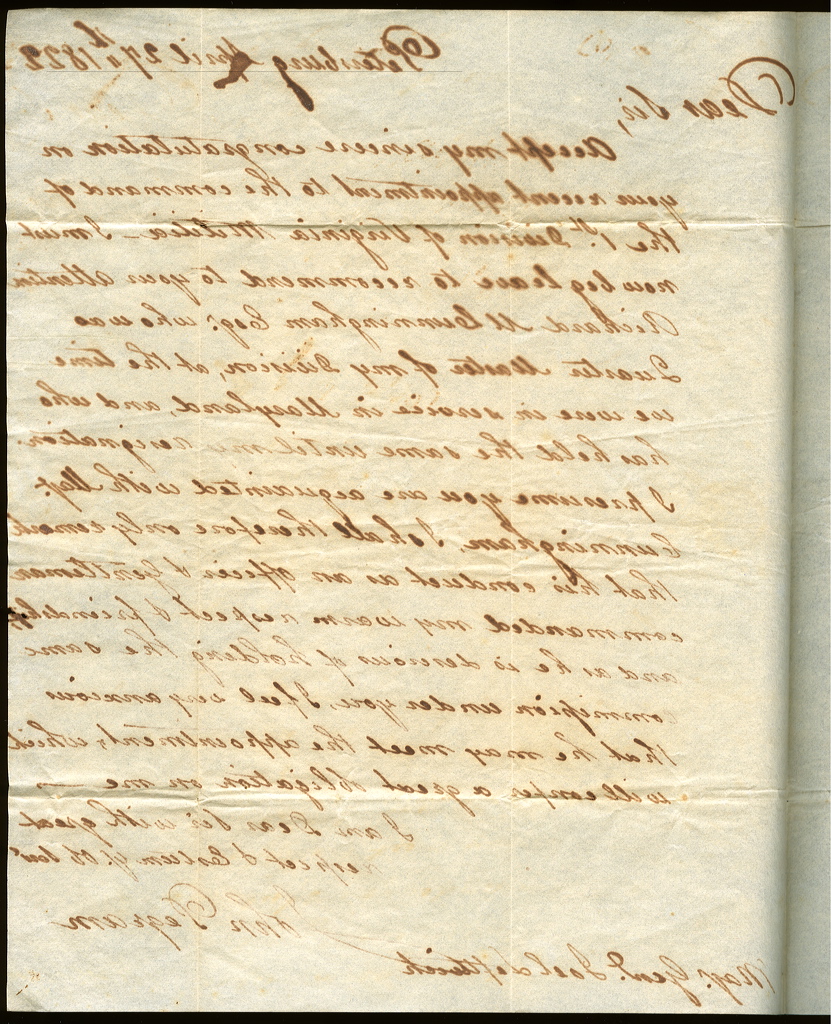 Petersburg April 27th 1822
Dear Sir,
Accept my sincere congratulation on
your recent appointment to the command of
the 1st Division of Virginia Militia – I must
now beg leave to recommend to your attention
Richard M Cunningham Esqr. who was
Quarter Master of my Division, at the time
we were in service in Maryland, and who
has held the same until my resignation.
I presume you are acquainted with Majr.
Cunningham, I shall therefore only remark
that his conduct as an officer & Gentleman
commanded my warm respect & friendship
and as he is desirous of holding the same
commission under you, I feel very anxious
that he may meet the appointment, which
will confer a great obligation on me —
I am Dear Sir with great
respect & Esteem yr. Ob Servt
John Pegram
Majr. Genl. Joel Leftwich